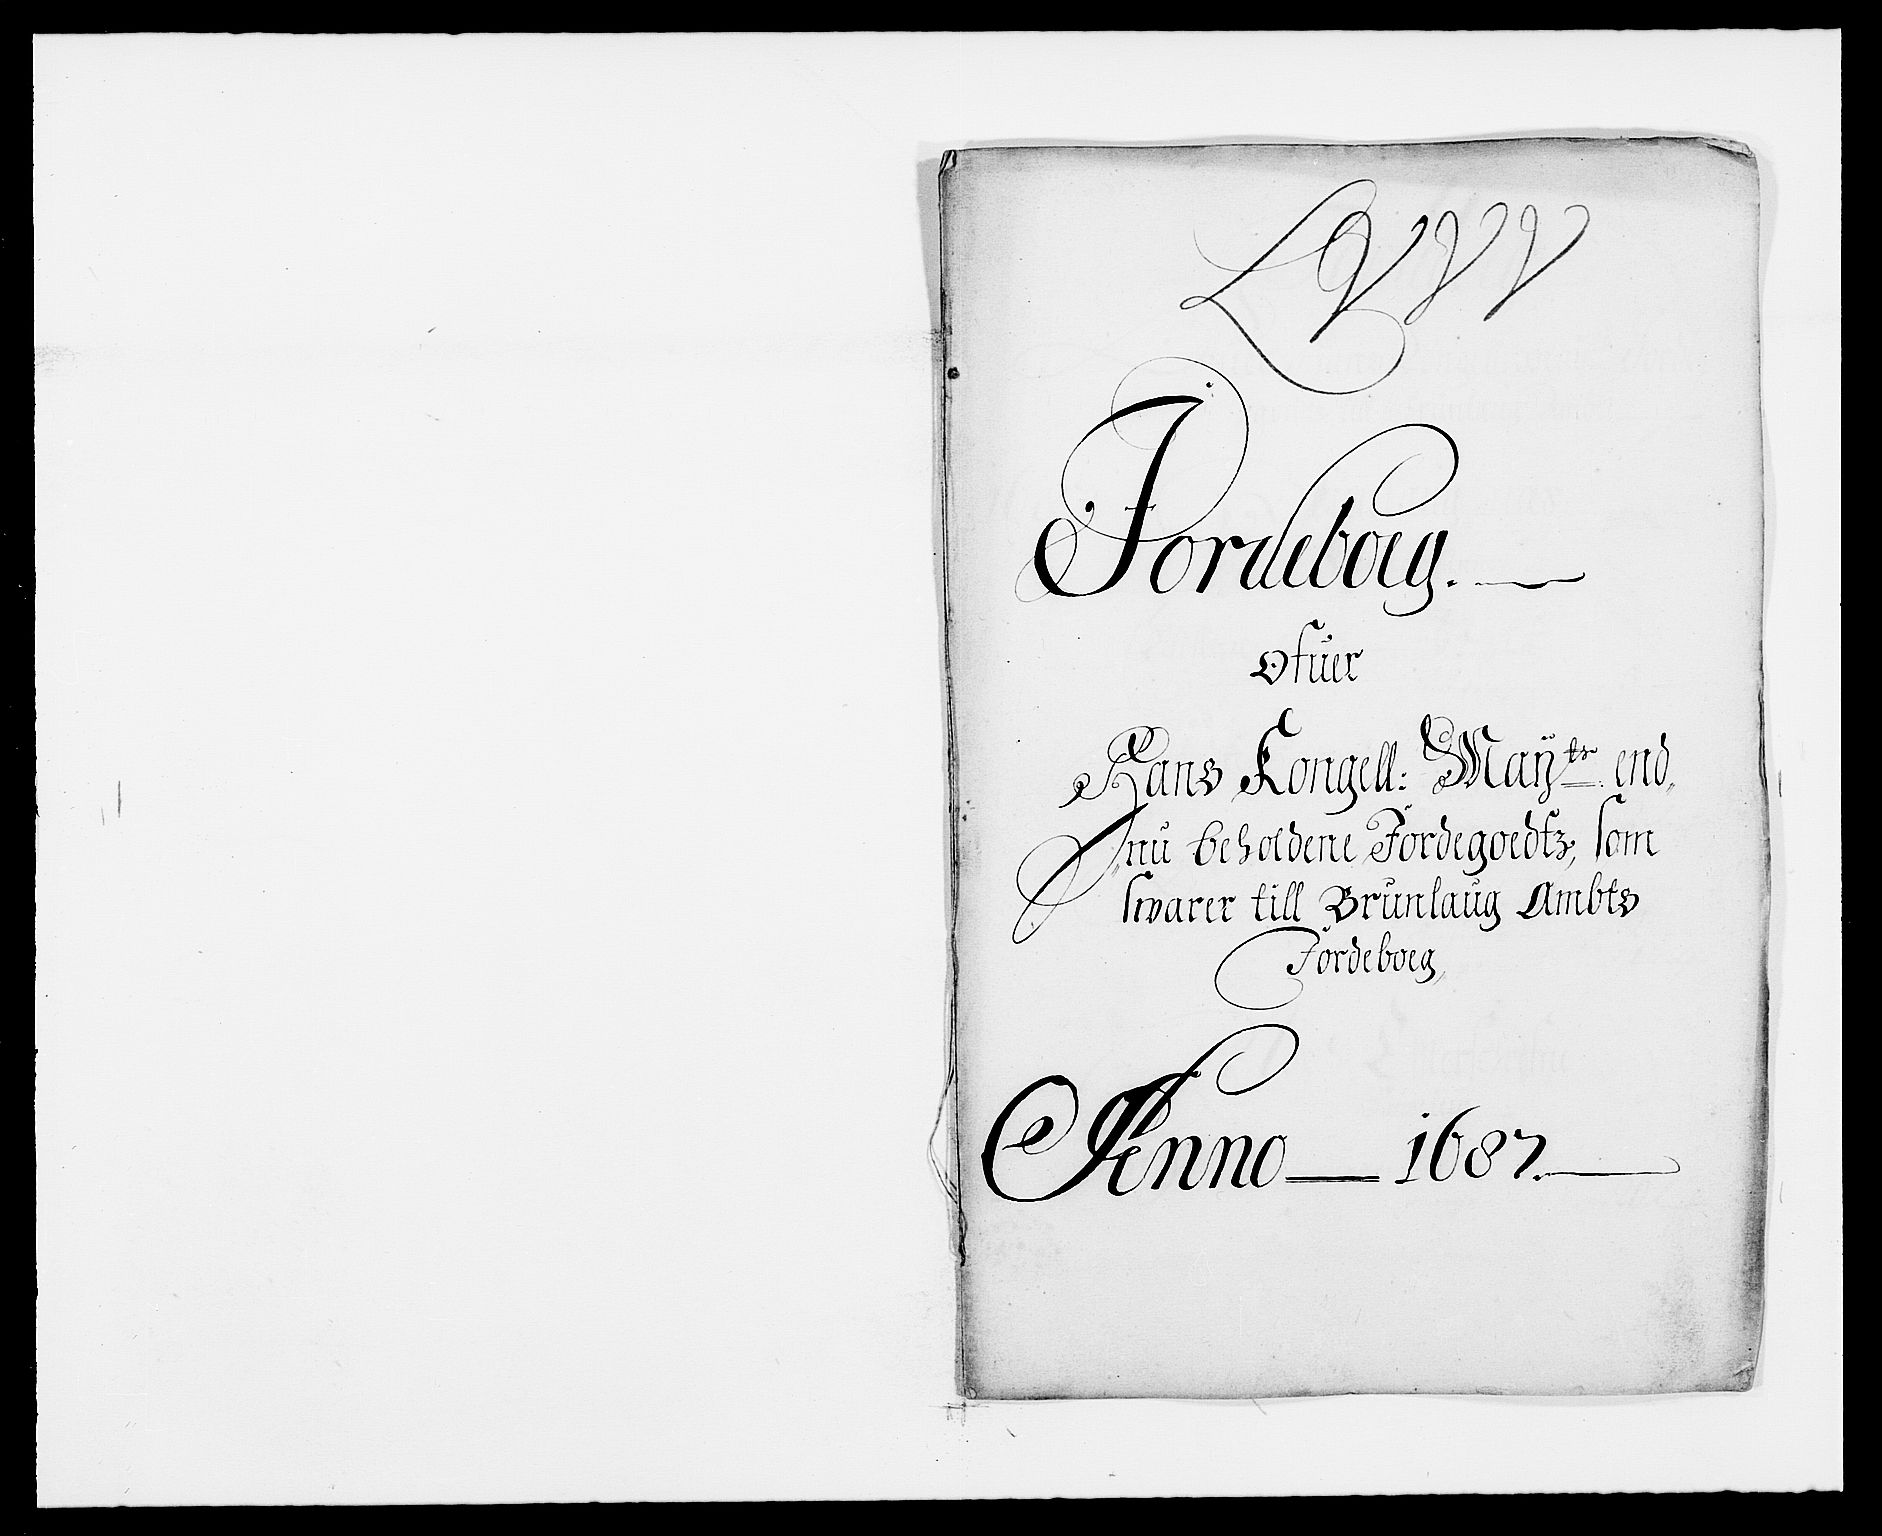 Jordeboeg.
Ofüer
Hans Kongell: Mayᵗˢ end,,
,,nü beholdene Jordegoedtz, som
swarer till Brünlaüg Ambts
Jordeboeg,,
Anno — 1687.